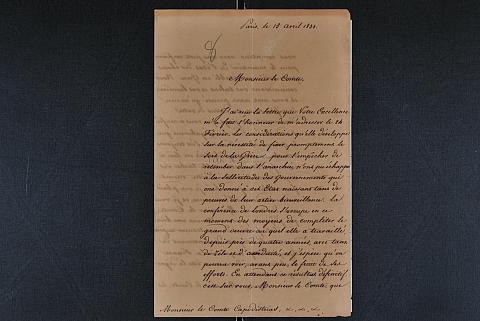 Paris, le 18 Avril 1831.
Monsieur le Comte,
J'ai reçu la lettre que Votre Excellence
m'a fait l'honneur de m'adresser le 14
Février. Les considérations qu'elle développe
sur la nécessité de fixer promptement le
sort de la Grèce, pour l'empêcher de
retomber dans l'anarchie, n'ont pu échapper
à la sollicitude des Gouvernements qui
ont donné à cet Etat naissant tant de
preuves de leur active bienveillance. La
conférence de Londres s'occupe en ce
moment des moyens de compléter le
grand œuvre auquel elle a travaillé
depuis près de quatre années, avec tant
de zèle et d'assiduité, et j'espère qu'on
pourra voir, avant peu, le fruit de ses
efforts. En attendant ce résultat définitif,
c'est sur vous, Monsieur le Comte, que
Monsieur le Comte Capodistrias,